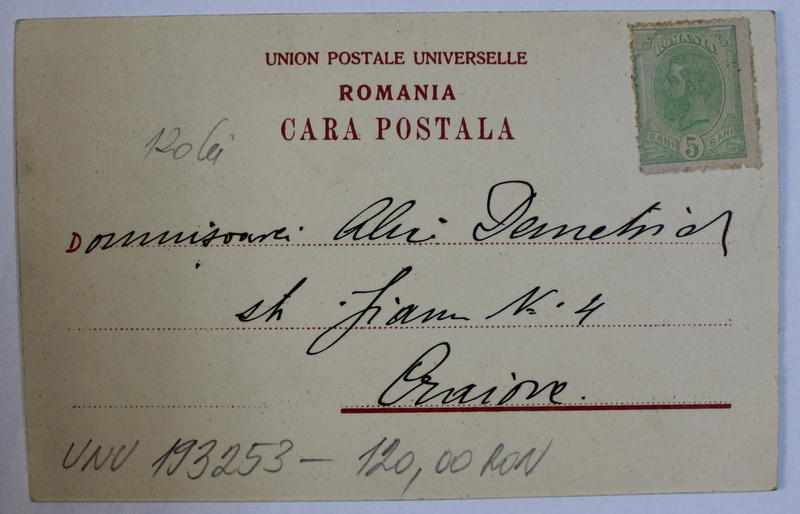 UNION POSTALE UNIVERSELLE
ROMANIA
CARA POSTALA
ROMANIA
BANI 5 BANI
120 lei
Domnisoarei Demetriad
str. Jianu No. 4
Craiova.
UNU 193253 - 120,00 RON